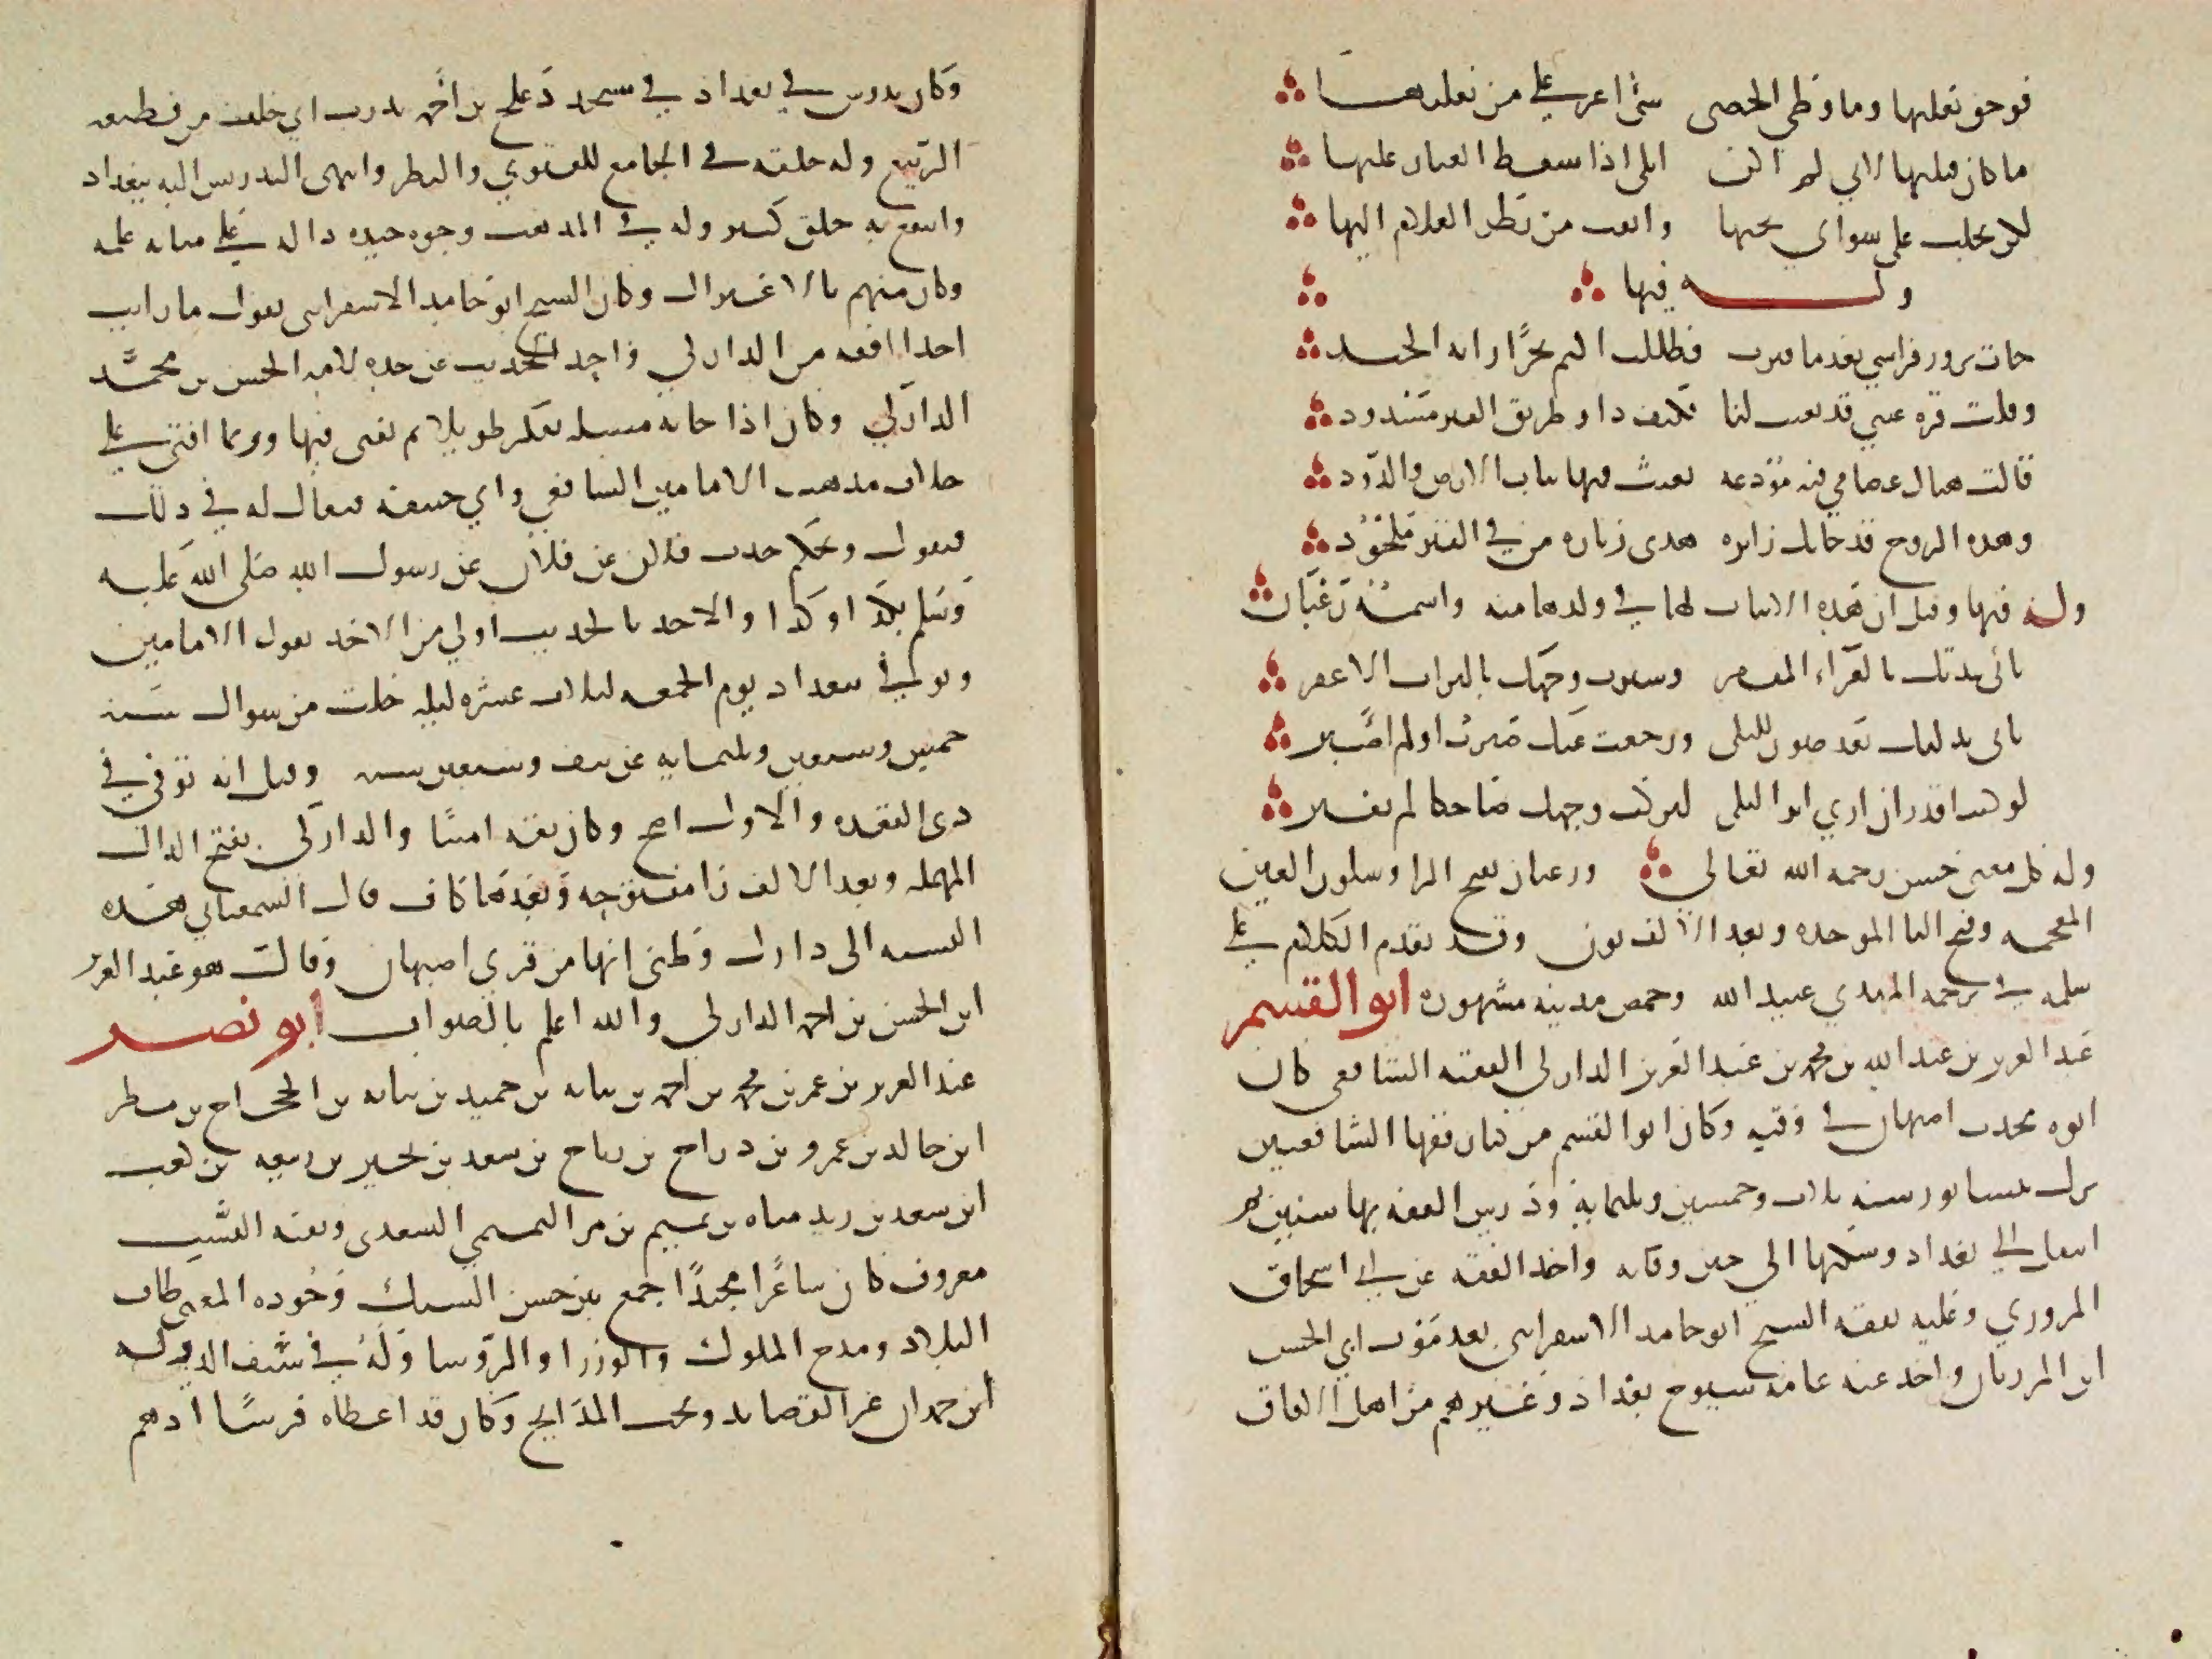 فوحق نعليها وما وطي الحصى شي اعز علي من نعليها
ما كان قتليها لاني لم اكن ابكي اذا سقط الغبار عليها
لكن بخلت على سواي بحبها وانفت من نظر الغلام اليها
وله فيها
جات تزور فراشي بعد ما قبرت فظللت الثم نحرا زانه الجيد
وقلت قرة عيني قد بعثت لنا فكيف ذا وطريق القبر مسدود
قالت هناك عظامي فيه مودعه تعيث فيها بنات الارض والدود
وهذه الروح قد جاتك زايره هذي زياره من في القبر ملحود
وله فيها وقيل ان هذه الابيات لها في ولدها منه واسمه رغبان
بابي نبذتك بالعراء المقفر وسترت وجهك بالتراب الاعفر
بابي بذلتك بعد صون للبلى ورجعت عنك صبرت او لم اصبر
لو كنت اقدر ان اري اثر البلى لتركت وجهك ضاحكا لم يقبر
وله كل معنى حسن رحمه الله تعالى ورغبان بفتح الرا وسكون الغين
المعجمه وفتح البا الموحده وبعد الالف نون وقد تقدم الكلام على
سلميه في ترجمه المهدي عبيد الله وحمص مدينه مشهوره ابو القسم
عبد العزيز بن عبد الله بن محمد بن عبد العزيز الداركي الفقيه الشافعي كان
ابوه محدث اصبهان في وقته وكان ابو القسم من كبار فقها الشافعيين
نزل نيسابور سنه ثلاث وخمسين وثلثمايه ودرس الفقه بها سنين ثم
انتقل الى بغداد وسكنها الى حين وفاته واخذ الفقه عن ابي اسحاق
المروزي وعليه تفقه الشيخ ابو حامد الاسفرايني بعد موت ابي الحسن
ابن المرزبان واخذ عنه عامه شيوخ بغداد وغيرهم من اهل الافاق
وكان يدرس في بغداد في مسجد دعلج بن احمد بدرب ابي خلف من قطيعه
الربيع وله حلقه في الجامع للفتوي والنظر وانتهى التدريس اليه ببغداد
وانتفع به خلق كثير وله في المذهب وجوه جيده داله على متانه علمه
وكان متهم بالاعتزال وكان الشيخ ابو حامد الاسفرايني يقول ما رايت
احدا افقه من الداركي واخذ الحديث عن جده لامه الحسن بن محمد
الداركي وكان اذا جاته مسئله تفكر طويلا ثم يفتي فيها وربما افتي على
خلاف مذهب الامامين الشافعي وابي حنيفه فيقال له في ذلك
فيقول ويحكم حدث فلان عن فلان عن رسول الله صلى الله عليه
وسلم بكذا وكذا والاخذ بالحديث اولي من الاخذ بقول الامامين
وتوفي في بغداد يوم الجمعه لثلاث عشره ليله خلت من شوال سنه
خمس وسبعين وثلثمايه عن نيف وسبعين سنه وقيل انه توفي في
ذي القعده والاول اصح وكان ثقه امينا والداركي بفتح الدال
المهمله وبعد الالف را مفتوحه وبعدها كاف قال السمعاني هذه
النسبه الى دارك وظني انها من قري اصبهان وقالت هو عبد العزيز
ابن الحسن بن احمد الداركي والله اعلم بالصواب ابو نصر
عبد العزيز بن عمر بن محمد بن احمد بن نباته بن حميد بن نباته بن الحجاج بن مطر
ابن خالد بن عمرو بن دراح بن رباح بن سعد بن بحير بن ربيعه بن كعب
ابن سعد بن زيد مناه بن تميم بن مر التميمي السعدي وبقيه النسب
معروف كان شاعرا مجيدا جمع بين حسن السبك وجوده المعنى طاف
البلاد ومدح الملوك والوزرا والروسا وله في سيف الدوله
ابن حمدان غر القصايد ونخب المدايح وكان قد اعطاه فرسا ادهم